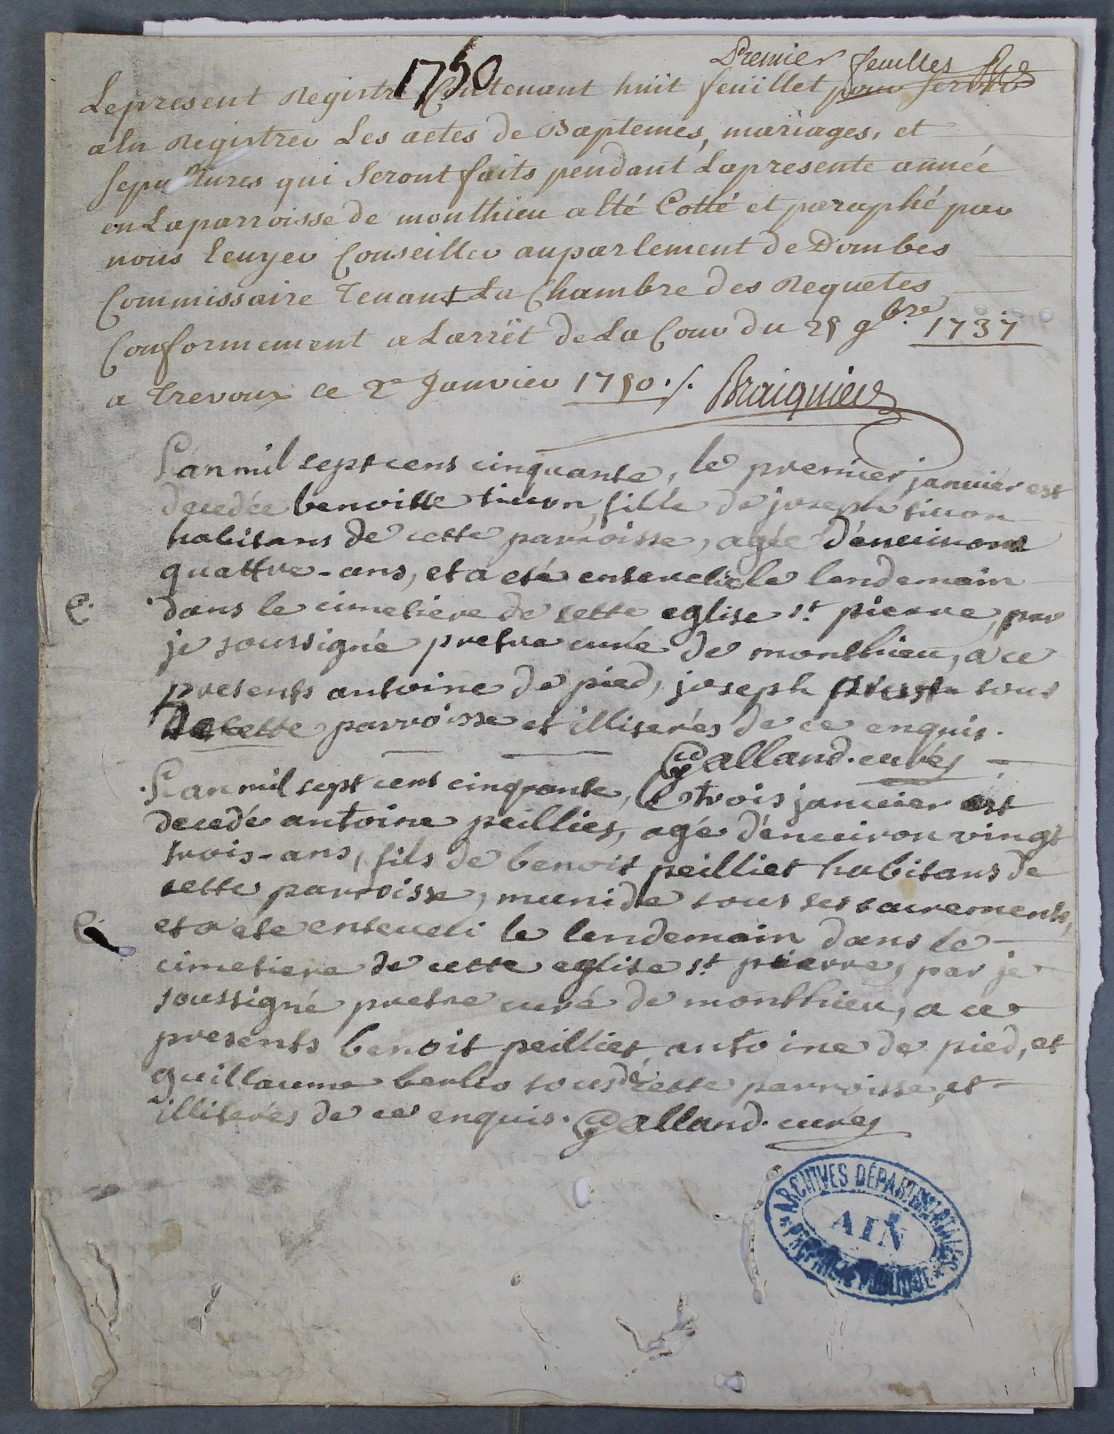 1750
Premier feuillet
Le present Registre Contenant huit feüillet pour servir
a En Registrer Les actes de Baptemes, mariages, et
sepultures qui seront faits pendant La presente année
en La parroisse de monthieu a Eté Cotté et paraphé par
nous Ecuyer Conseiller au parlement de Dombes
Commissaire Tenant La Chambre des Requetes
Conformement a L'arrêt de La Cour du 25 9bre 1737
a Trevoux ce 2e Janvier 1750 ./.
L'an mil sept cens cinquante, le premier janvier est
decedée benoitte fille de joseph
habitans de cette parroisse, agée d'énuiron
quattre-ans, et a eté enseveli le lendemain
dans le cimetiere de cette eglise st. pierre, par
je soussigné pretre curé de monthieu, a ce
presents antoine de pied, joseph tous
de cette parroisse et illiterés de ce enquis.
Galland. curés
L'an mil sept cens cinquante, le trois janvier est
decedé antoine peillies, agé d'énuiron vingt
trois-ans, fils de benoit peilliet habitans de
cette parroisse, muni de tous ses sacrements,
et a eté enseveli le lendemain dans le
cimetiere de cette eglise st. pierre, par je
soussigné pretre curé de monthieu, a ce
presents benoit peilliet, antoine de pied, et
guillaume berlio tous de cette parroisse, et
illiterés de ce enquis. Galland. curés
ARCHIVES DÉPARTEMENTALES
AIN